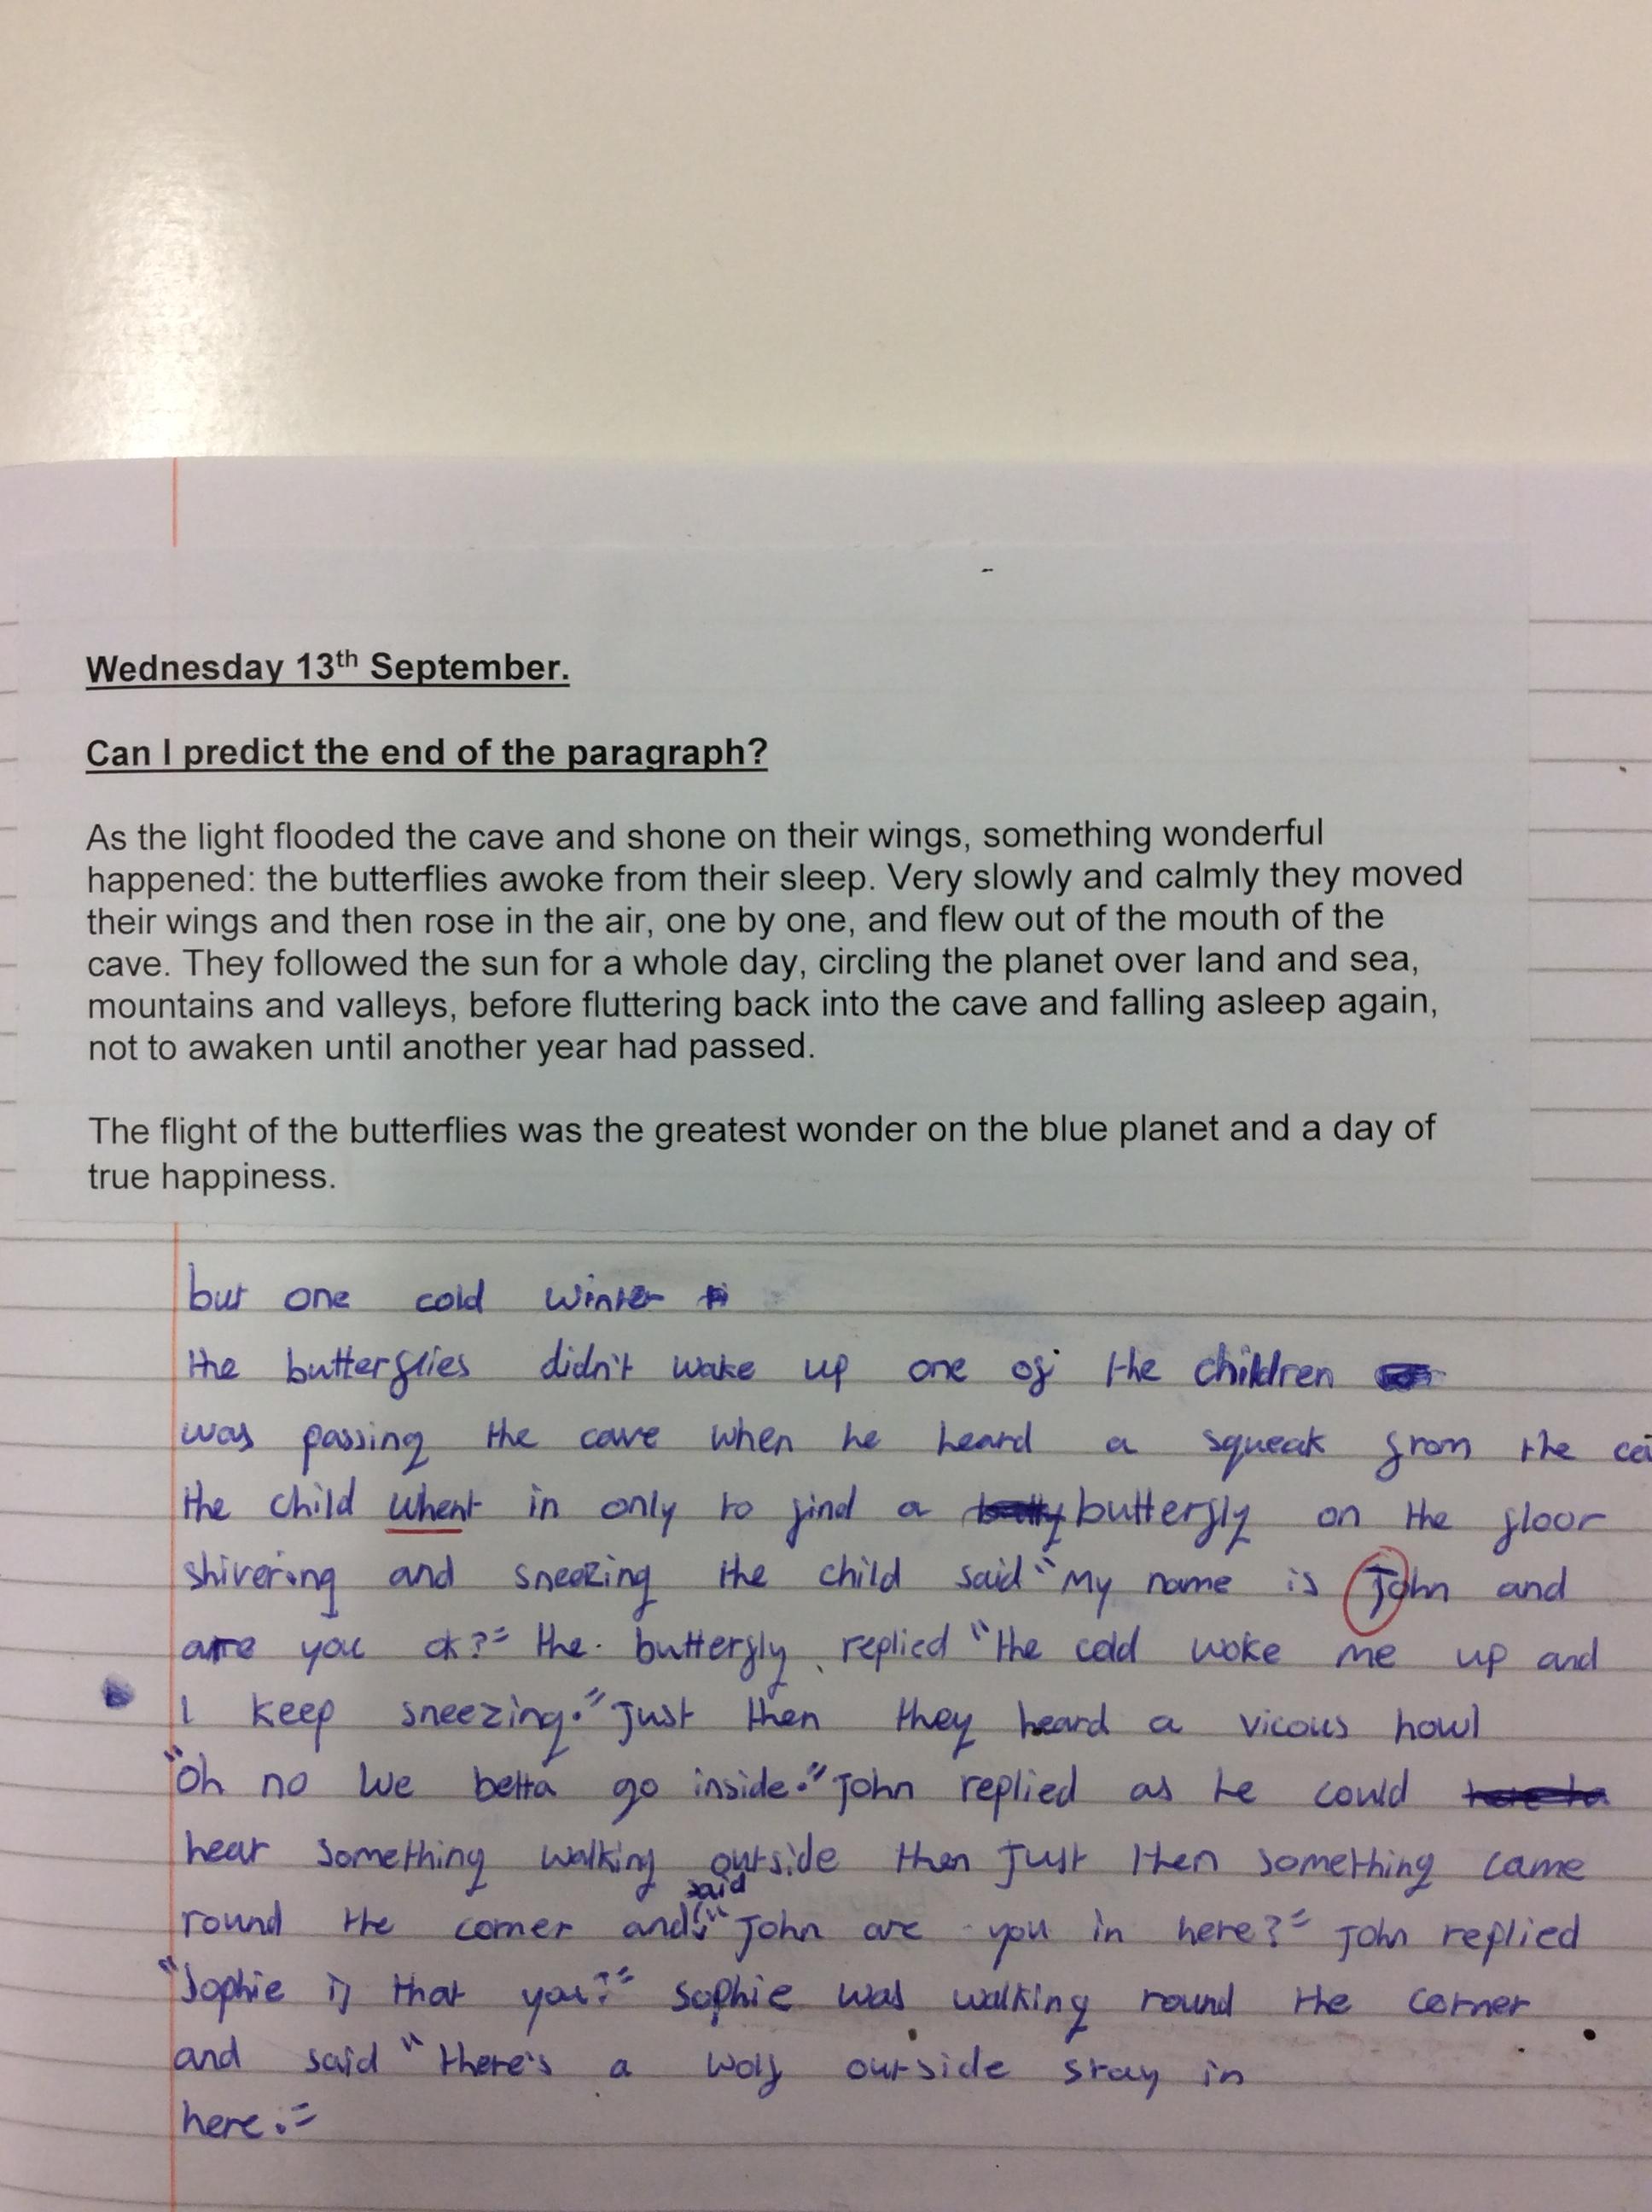 Wednesday 13th September.
Can I predict the end of the paragraph?
As the light flooded the cave and shone on their wings, something wonderful
happened: the butterflies awoke from their sleep. Very slowly and calmly they moved
their wings and then rose in the air, one by one, and flew out of the mouth of the
cave. They followed the sun for a whole day, circling the planet over land and sea,
mountains and valleys, before fluttering back into the cave and falling asleep again,
not to awaken until another year had passed.
The flight of the butterflies was the greatest wonder on the blue planet and a day of
true happiness.
but one cold winter
the butterflies didn't wake up one of the children
was passing the cave when he heard a squeak from the
the child whent in only to find a butterfly on the floor
shivering and sneezing the child said "My name is John and
are you ok?" the butterfly replied "the cold woke me up and
I keep sneezing." Just then they heard a vicous howl
"Oh no We betta go inside." John replied as he could
hear something walking outside then Just then something came
round the corner and said "John are you in here?" John replied
"Sophie is that you?" Sophie was walking round the corner
and said "there's a wolf outside stay in
here."